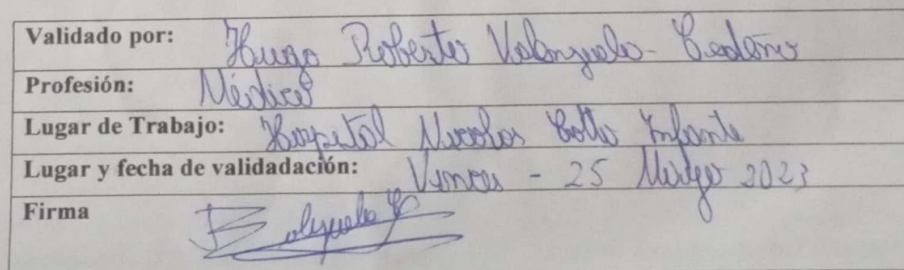 Validado por: Hugo Roberto Valenzuela Cedeño
Profesión: Médico
Lugar de Trabajo: Hospital Nicolas Cotto Infante
Lugar y fecha de validadación: Vinces - 25 Marzo 2023
Firma